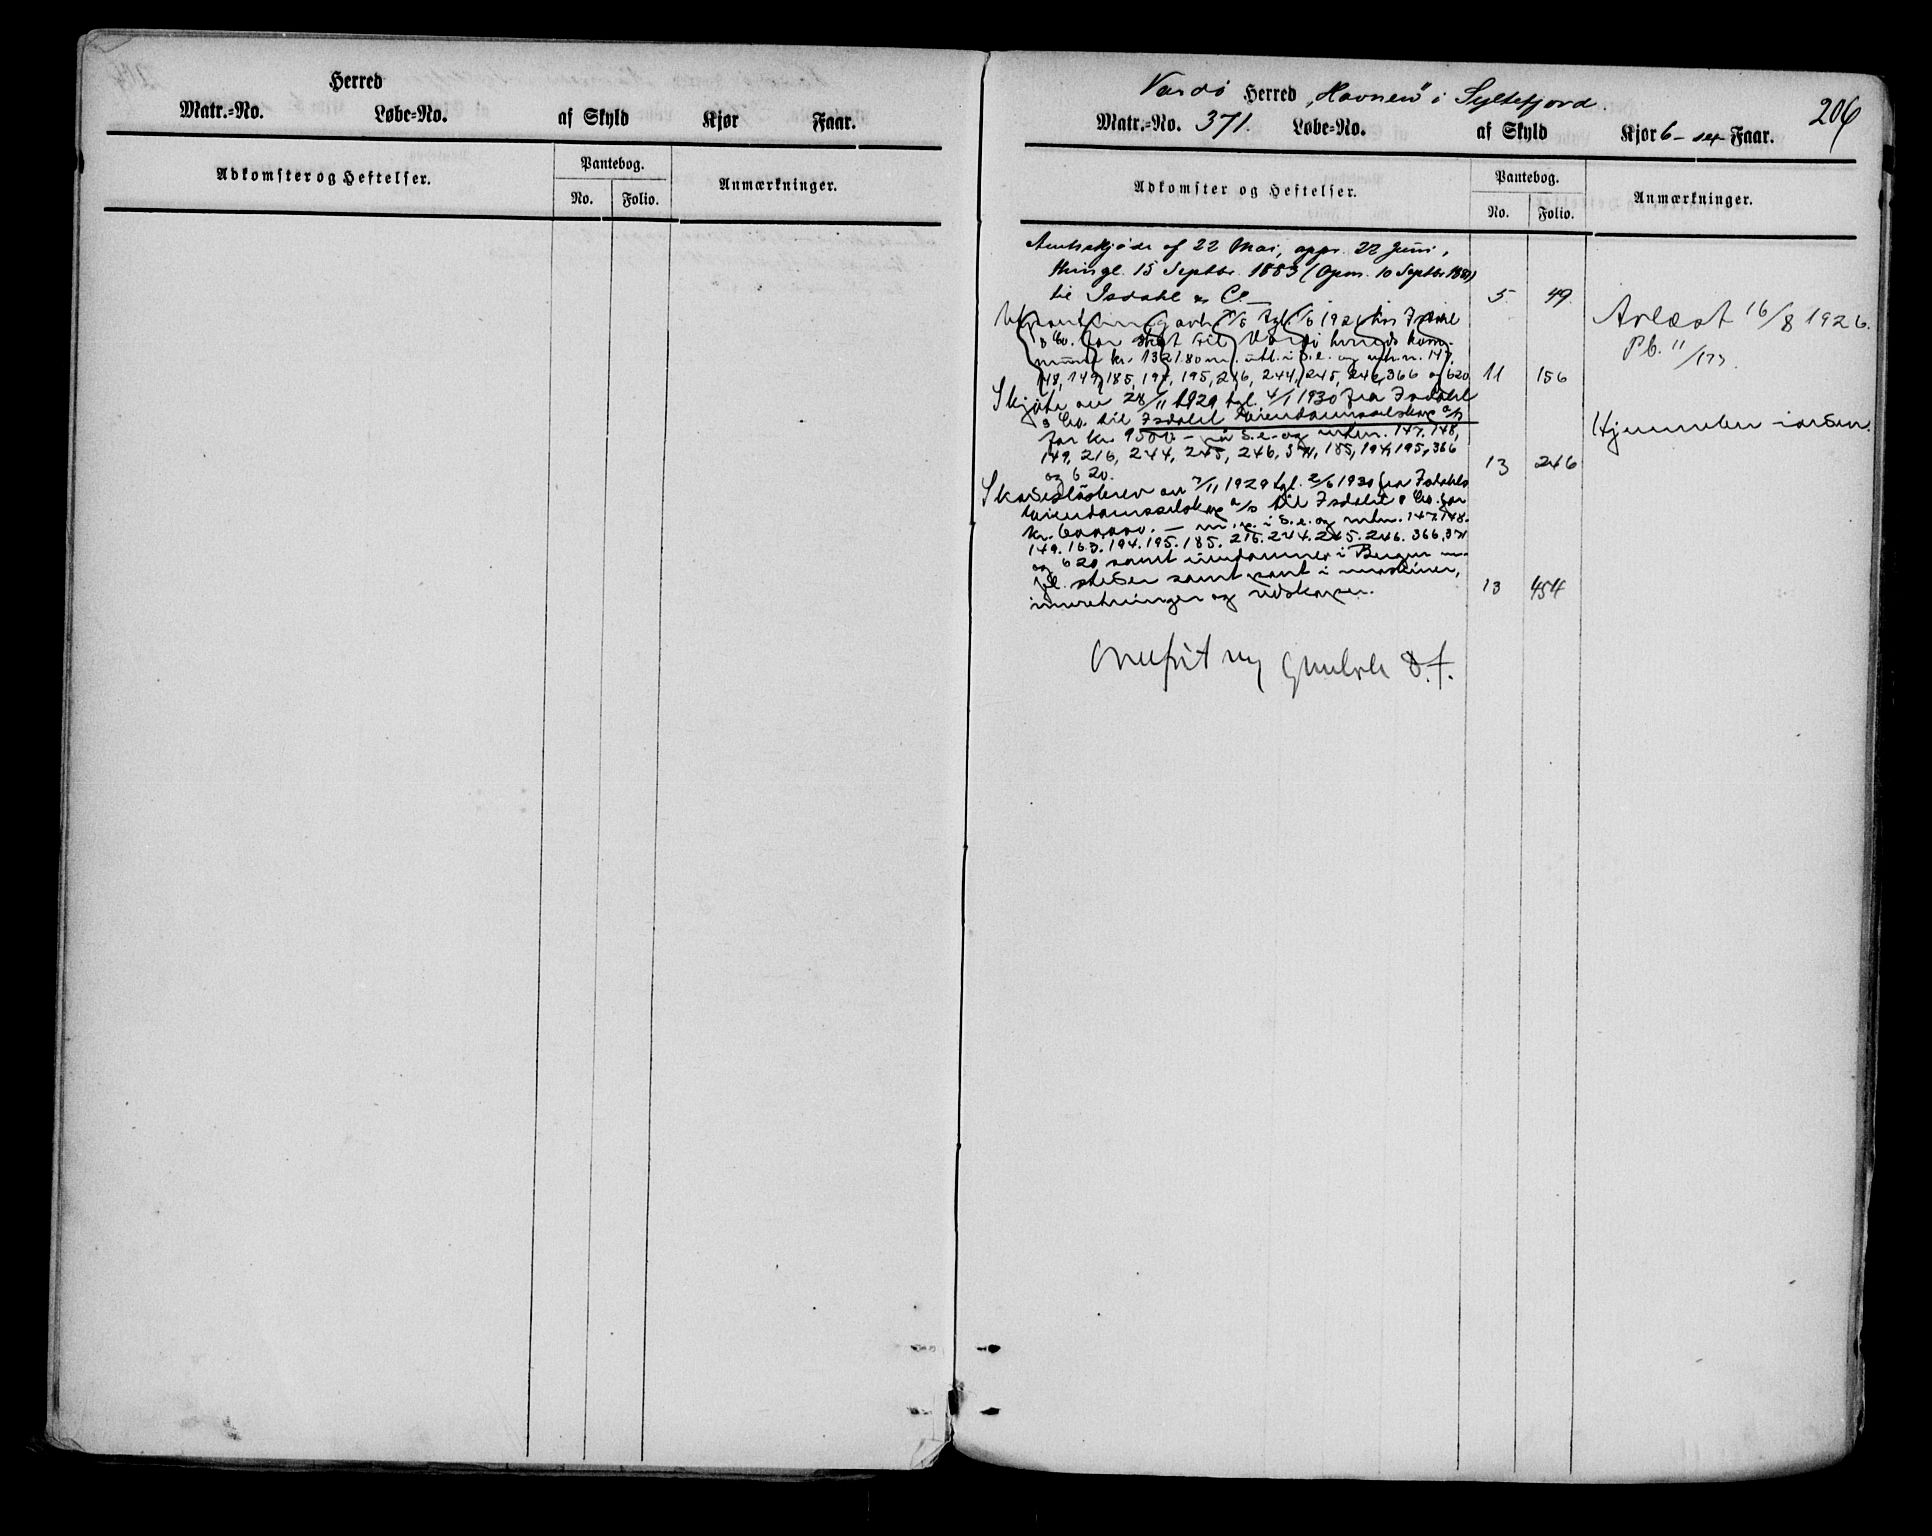 Herred
Matr.-No. Løbe-No. af Skyld Kjør Faar.
Adkomster og Heftelser.
Pantebog.
No. Folio.
Anmærkninger.
Vardø Herred „Havnen" i Syltefjord.
206
Matr.-No. 371. Løbe-No. af Skyld Kjør 6 - sex Faar.
Adkomster og Heftelser.
Pantebog.
No. Folio.
Anmærkninger.
Amtsskjøde af 22 Mai, appr. 22 Juni,
thingl. 15 Septbr. 1883 (Opm. 10 Septbr
til Isdahl & Co. 5 49.
1921 hos Isdahl
& Co. for skat til Vardø herreds kom-
mune kr. 1321.80 m. utl. i s.e. og mtr.n. 147,
148, 149, 185, 194, 195, 216, 244, 245, 246, 366 og 620 11 156
Avlæst 16/8 1926.
Pb. 11/177
Skjøte av 28/11 1929 tgl. 4/1 1930 fra Isdahl
& Co. til Isdahl Eiendomsselskap a/s
for kr. 9500 - på s.e. og mtrn. 147, 148,
149, 216, 244, 245, 246, 371, 185, 194, 195, 366
og 620. 13 246
Hjemmelen i orden.
Skadesløsbrev av 7/11 1929 tgl. 2/6 1930 fra Isdahls
Eiendomsselskap a/s til Isdahl & Co. for
kr. 600000. - m. p. i s.e. og mtrn. 147. 148.
149. 163. 194. 195. 185. 216. 244. 245. 246. 366, 371
og 620 samt eiendommer i Bergen m.
fl. steder samt pant i maskiner,
innretninger og redskaper. 13 454